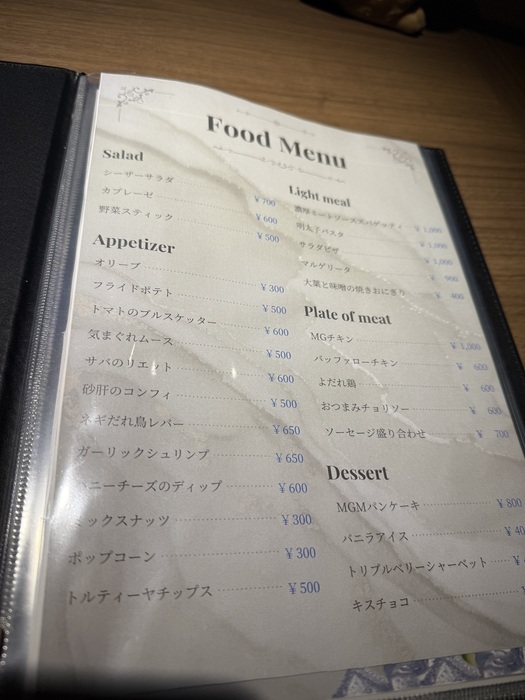 Food Menu
Salad
シーザーサラダ ¥700
カプレーゼ ¥600
野菜スティック ¥500
Appetizer
オリーブ ¥300
フライドポテト ¥500
トマトのブルスケッター ¥600
気まぐれムース ¥500
サバのリエット ¥600
砂肝のコンフィ ¥500
ネギだれ鳥レバー ¥650
ガーリックシュリンプ ¥650
ハニーチーズのディップ ¥600
ミックスナッツ ¥300
ポップコーン ¥300
トルティーヤチップス ¥500
Light meal
濃厚ミートソーススパゲッティ ¥1,000
明太子パスタ ¥1,000
サラダピザ ¥1,000
マルゲリータ ¥900
大葉と味噌の焼きおにぎり ¥400
Plate of meat
MGチキン ¥1,000
バッファローチキン ¥600
よだれ鶏 ¥600
おつまみチョリソー ¥600
ソーセージ盛り合わせ ¥700
Dessert
MGMパンケーキ ¥800
バニラアイス ¥40
トリプルベリーシャーベット ¥
キスチョコ